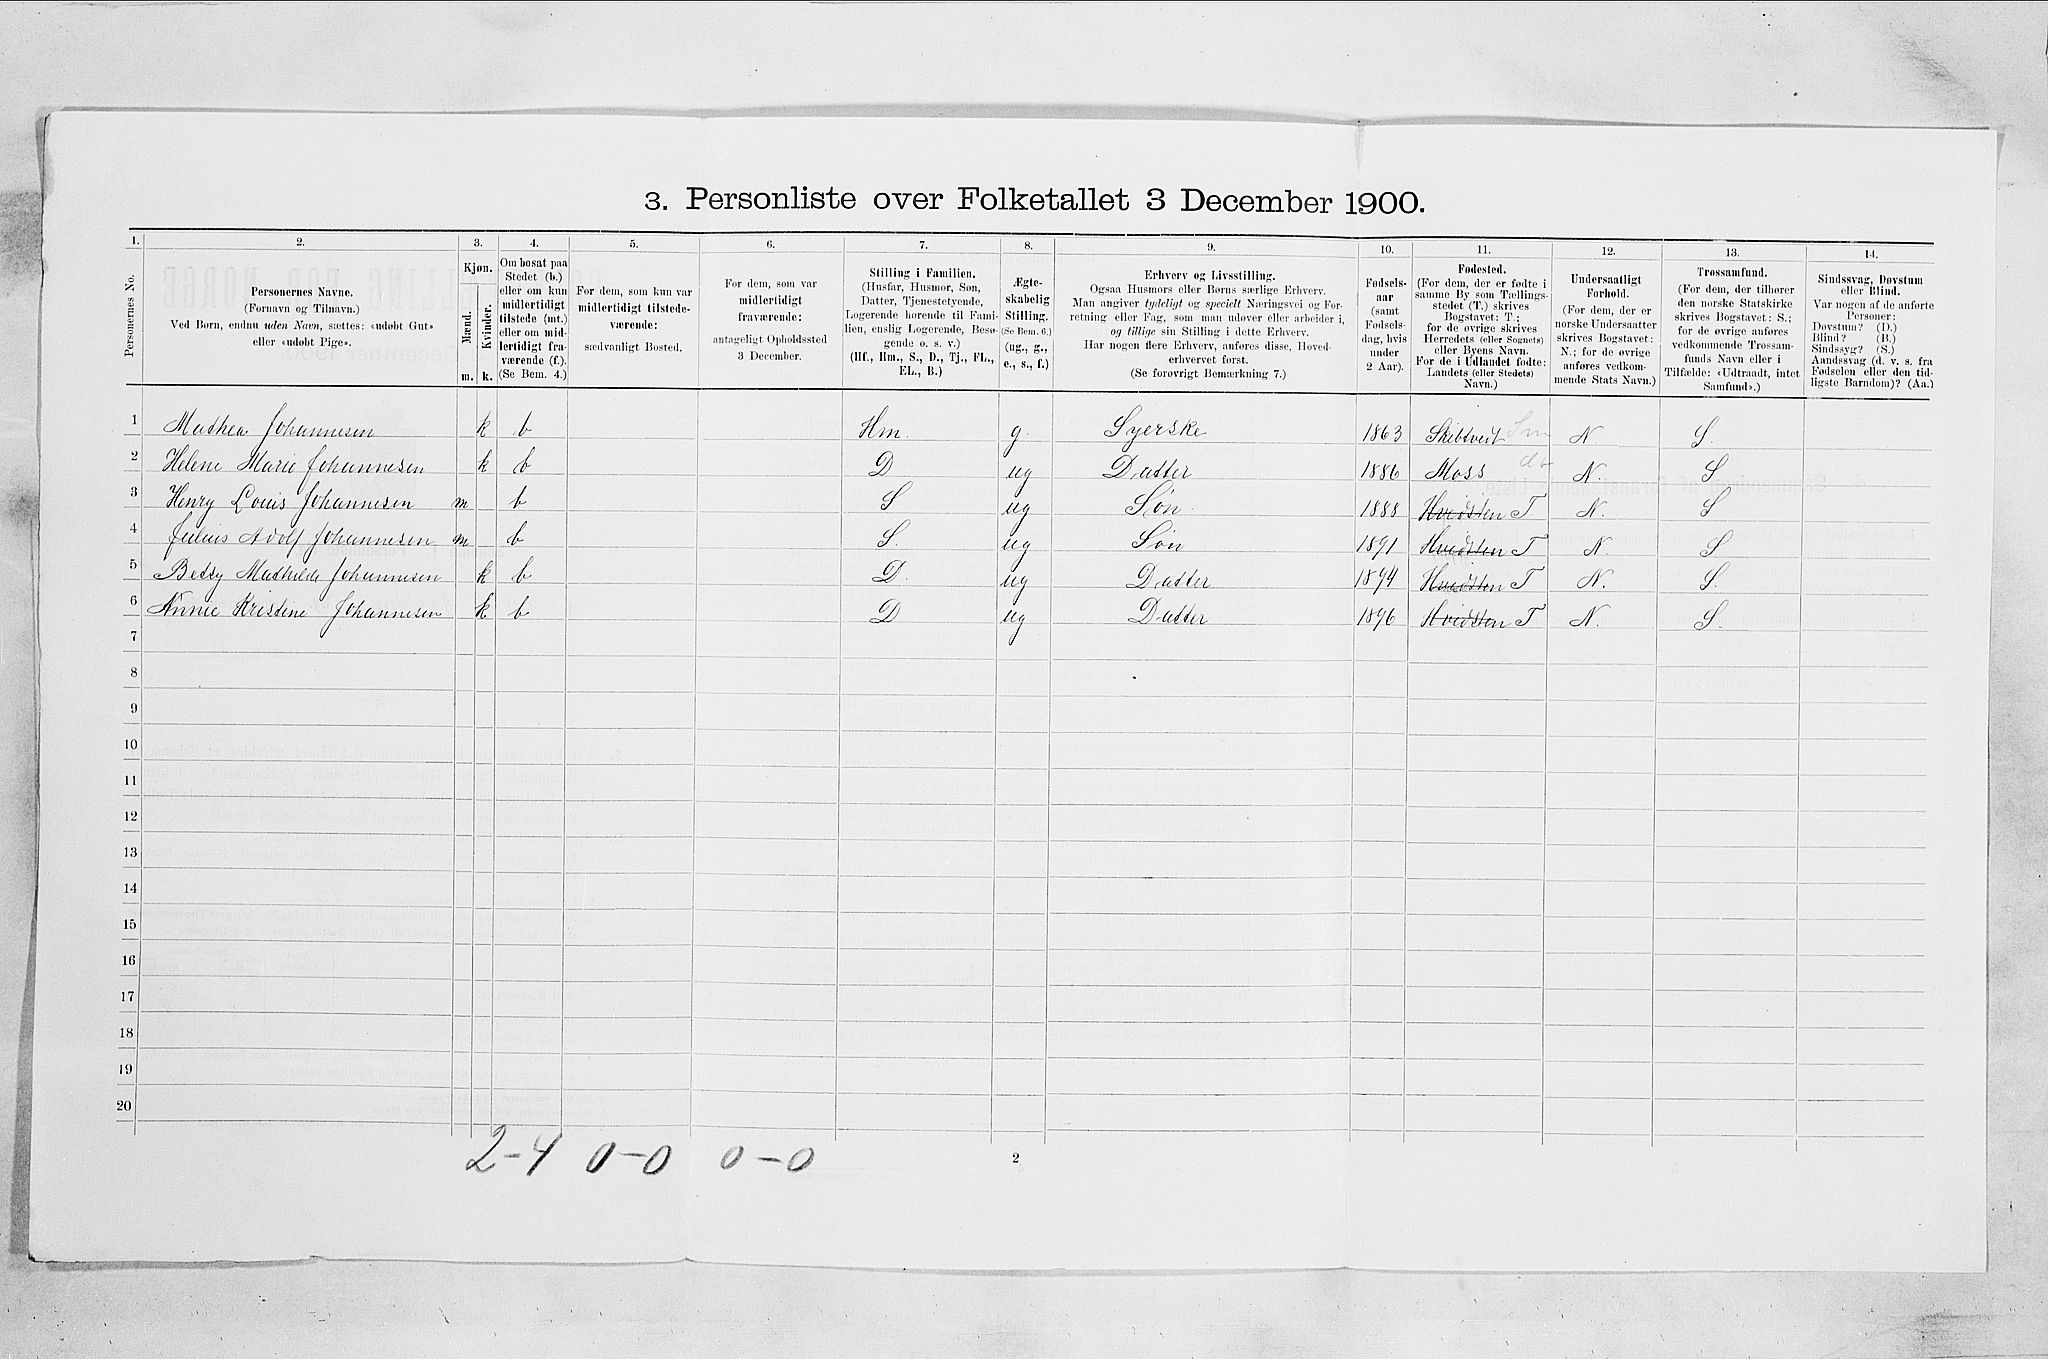 3. Personliste over Folketallet 3 December 1900.
1. 2. 3. 4. 5. 6. 7. 8. 9. 10. 11. 12. 13. 14.
Personernes No.
Personernes Navne.
(Fornavn og Tilnavn.)
Ved Børn, endnu uden Navn, sættes: «udøbt Gut»
eller «udøbt Pige».
Kjøn.
Mænd.
Kvinder.
m. k.
Om bosat paa
Stedet (b.)
eller om kun
midlertidigt
tilstede (mt.)
eller om mid-
lertidigt fra-
værende (f.).
(Se Bem. 4.)
For dem, som kun var
midlertidigt tilstede-
værende:
sædvanligt Bosted.
For dem, som var
midlertidigt
fraværende:
antageligt Opholdssted
3 December.
Stilling i Familien.
(Husfar, Husmor, Søn,
Datter, Tjenestetyende,
Logerende hørende til Fami-
lien, enslig Logerende, Besø-
gende o. s. v.)
(Hf., Hm., S., D., Tj., FL.,
EL., B.)
Ægte-
skabelig
Stilling.
(Se Bem. 6.)
(ug., g.,
e., s., f.)
Erhverv og Livsstilling.
Ogsaa Husmors eller Børns særlige Erhverv.
Man angiver tydeligt og specielt Næringsvei og For-
retning eller Fag, som man udøver eller arbeider i,
og tillige sin Stilling i dette Erhverv.
Har nogen flere Erhverv, anføres disse, Hoved-
erhvervet først.
(Se forøvrigt Bemærkning 7.)
Fødsels-
aar
(samt
Fødsels-
dag, hvis
under
2 Aar).
Fødested.
(For dem, der er fødte i
samme By som Tællings-
stedet (T.) skrives
Bogstavet: T.;
for de øvrige skrives
Herredets (eller Sognets)
eller Byens Navn.
For de i Udlandet fødte:
Landets (eller Stedets)
Navn.)
Undersaatligt
Forhold.
(For dem, der er
norske Undersaatter
skrives Bogstavet:
N.; for de øvrige
anføres vedkom-
mende Stats Navn.)
Trossamfund.
(For dem, der tilhører
den norske Statskirke
skrives Bogstavet: S.;
for de øvrige anføres
vedkommende Trossam-
funds Navn eller i
Tilfælde: «Udtraadt, intet
Samfund».)
Sindssvag, Døvstum
eller Blind.
Var nogen af de anførte
Personer:
Døvstum? (D.)
Blind? (B.)
Sindssyg? (S.)
Aandssvag (d. v. s. fra
Fødselen eller den tid-
ligste Barndom)? (Aa.)
1 Mathea Johannesen k b Hm. g. Syerske 1863 Skibtvedt Sm N. S.
2 Helene Marie Johannesen k b D ug Datter 1886 Moss do N. S
3 Henry Louis Johannesen m b S ug Søn. 1888 Hvidsten T N. S
4 Julius Adolf Johannesen m b S. ug Søn 1891 Hvidsten T N. S
5 Betsy Mathilde Johannesen k b D. ug Datter 1894 Hvidsten T N. S.
6 Annie Kristine Johannesen k b D ug Datter 1896 Hvidsten T N. S.
7
8
9
10
11
12
13
14
15
16
17
18
19
20
2-4 0-0 0-0
2